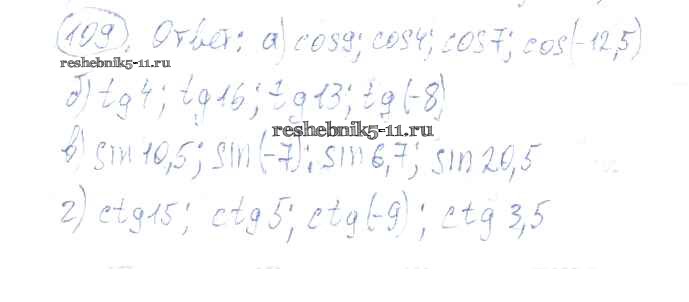 109. Ответ: а) cos9; cos4; cos7; cos(-12,5)
reshebnik5-11.ru
б) tg4; tg16; tg13; tg(-8)
reshebnik5-11.ru
в) sin10,5; sin(-7); sin6,7; sin20,5
г) ctg15; ctg5; ctg(-9); ctg 3,5